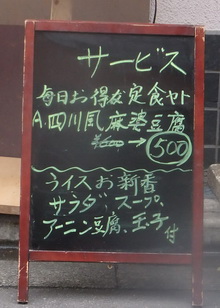 サービス
毎日お得な定食ヤト
A.四川風麻婆豆腐
¥600→500
ライスお新香
サラダ、スープ、
アーニン豆腐、玉子付